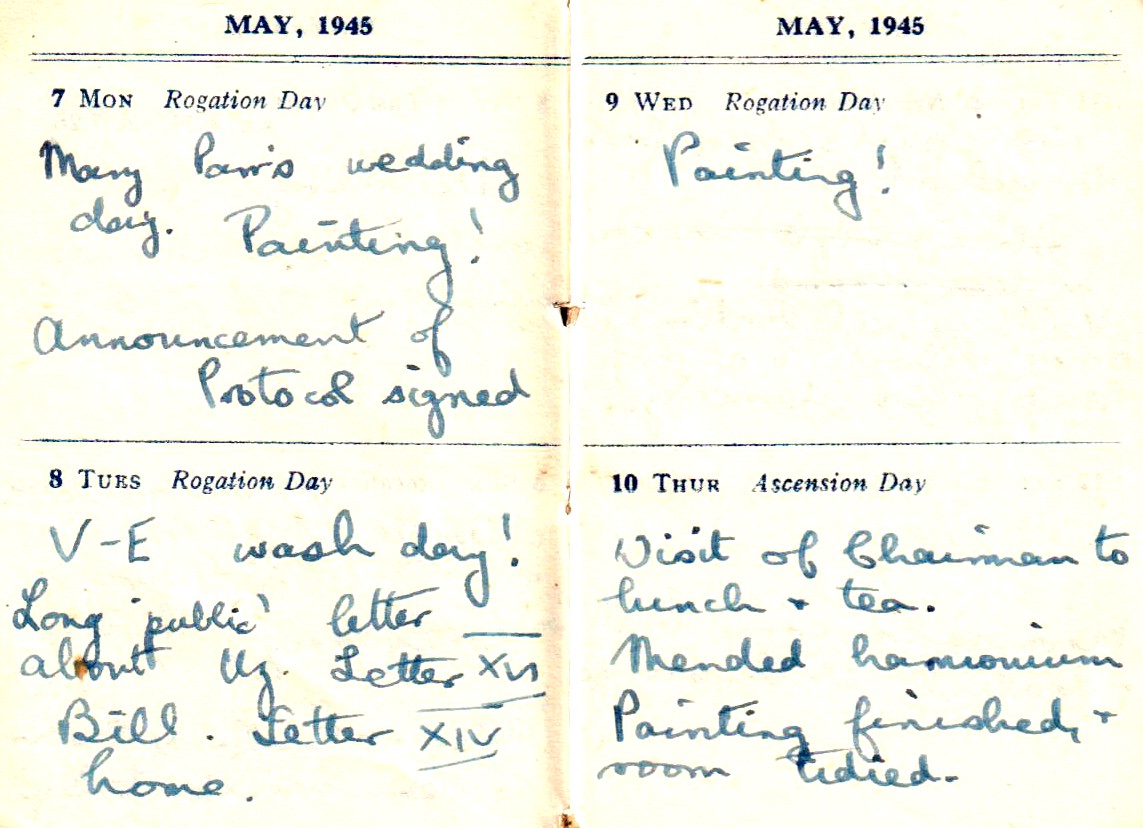 MAY, 1945
7 MON Rogation Day
Mary Pam's wedding
day. Painting!
Announcement of
Protocol signed
8 TUES Rogation Day
V-E wash day!
Long 'public' letter
about Letter XVI
Bill. Letter XIV
home.
MAY, 1945
9 WED Rogation Day
Painting!
10 THUR Ascension Day
Visit of Chairman to
lunch + tea.
Mended harmonium
Painting finished, +
room tidied.